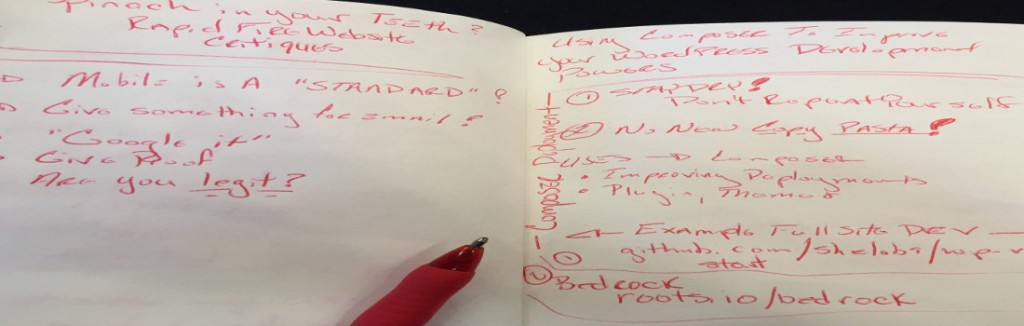 Spinach in your Teeth?
Rapid Fire Website
Critiques
Mobile is A "STANDARD"?
Give something for email?
"Google it"
Give Proof
Are you legit?
Using Composer To Improve
your WordPress Development
Powers
① STAY DRY!
Don't Repeat Your self
② No New Copy PASTA!
USES → Composer
• Improving Deployments
• Plugin, Themes
← Example Full Site DEV
① github.com/shelob9/wp-
start
② Bedrock
roots.io/bedrock
Composer